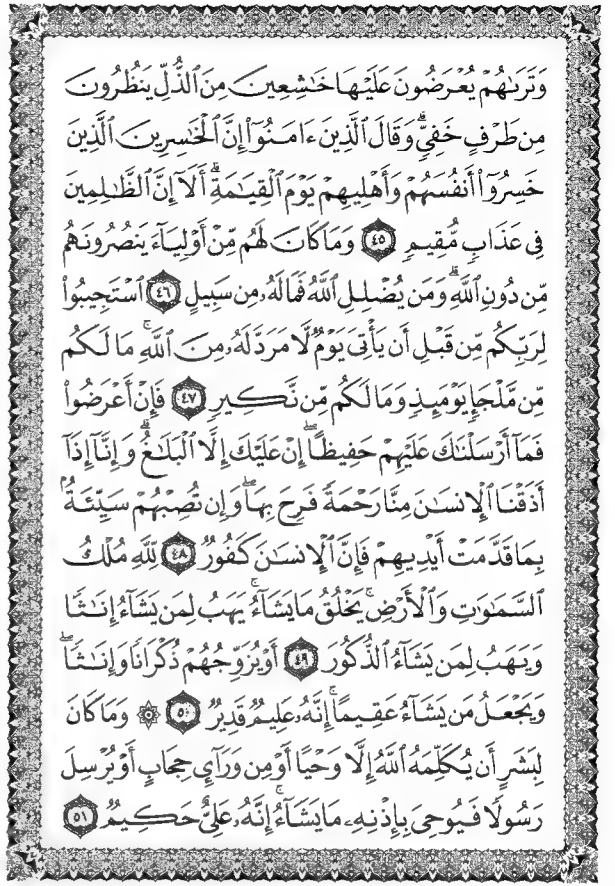 وَتَرَىٰهُمْ يُعْرَضُونَ عَلَيْهَا خَـٰشِعِينَ مِنَ ٱلذُّلِّ يَنظُرُونَ
مِن طَرْفٍ خَفِىٍّ ۗ وَقَالَ ٱلَّذِينَ ءَامَنُوٓا۟ إِنَّ ٱلْخَـٰسِرِينَ ٱلَّذِينَ
خَسِرُوٓا۟ أَنفُسَهُمْ وَأَهْلِيهِمْ يَوْمَ ٱلْقِيَـٰمَةِ ۗ أَلَآ إِنَّ ٱلظَّـٰلِمِينَ
فِى عَذَابٍ مُّقِيمٍ ٤٥ وَمَا كَانَ لَهُم مِّنْ أَوْلِيَآءَ يَنصُرُونَهُم
مِّن دُونِ ٱللَّهِ ۗ وَمَن يُضْلِلِ ٱللَّهُ فَمَا لَهُۥ مِن سَبِيلٍ ٤٦ ٱسْتَجِيبُوا۟
لِرَبِّكُم مِّن قَبْلِ أَن يَأْتِىَ يَوْمٌ لَّا مَرَدَّ لَهُۥ مِنَ ٱللَّهِ ۚ مَا لَكُم
مِّن مَّلْجَإٍ يَوْمَئِذٍ وَمَا لَكُم مِّن نَّكِيرٍ ٤٧ فَإِنْ أَعْرَضُوا۟
فَمَآ أَرْسَلْنَـٰكَ عَلَيْهِمْ حَفِيظًا ۖ إِنْ عَلَيْكَ إِلَّا ٱلْبَلَـٰغُ ۗ وَإِنَّآ إِذَآ
أَذَقْنَا ٱلْإِنسَـٰنَ مِنَّا رَحْمَةً فَرِحَ بِهَا ۖ وَإِن تُصِبْهُمْ سَيِّئَةٌۢ
بِمَا قَدَّمَتْ أَيْدِيهِمْ فَإِنَّ ٱلْإِنسَـٰنَ كَفُورٌ ٤٨ لِّلَّهِ مُلْكُ
ٱلسَّمَـٰوَٰتِ وَٱلْأَرْضِ ۚ يَخْلُقُ مَا يَشَآءُ ۚ يَهَبُ لِمَن يَشَآءُ إِنَـٰثًا
وَيَهَبُ لِمَن يَشَآءُ ٱلذُّكُورَ ٤٩ أَوْ يُزَوِّجُهُمْ ذُكْرَانًا وَإِنَـٰثًا ۖ
وَيَجْعَلُ مَن يَشَآءُ عَقِيمًا ۚ إِنَّهُۥ عَلِيمٌ قَدِيرٌ ٥٠ ۞ وَمَا كَانَ
لِبَشَرٍ أَن يُكَلِّمَهُ ٱللَّهُ إِلَّا وَحْيًا أَوْ مِن وَرَآئِ حِجَابٍ أَوْ يُرْسِلَ
رَسُولًا فَيُوحِىَ بِإِذْنِهِۦ مَا يَشَآءُ ۚ إِنَّهُۥ عَلِىٌّ حَكِيمٌ ٥١